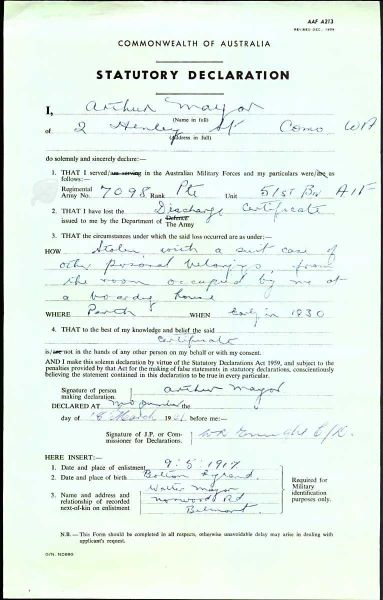 AAF A213
REVISED DEC. 1959
COMMONWEALTH OF AUSTRALIA
STATUTORY DECLARATION
I, Arthur Mayor
(Name in full)
of 2 Henley St Como WA
(Address in full)
do solemnly and sincerely declare:—
1. THAT I served/am serving in the Australian Military Forces and my particulars were/are as
follows:—
Regimental
Army No. 7098 Rank Pte Unit 51st Bn AIF
2. THAT I have lost the Discharge Certificate
issued to me by the Department of Defence
The Army
3. THAT the circumstances under which the said loss occurred are as under:—
HOW Stolen, with a suit case of
other personal belongings, from
the room occupied by me at
a boarding house
WHERE Perth WHEN Early in 1930
4. THAT to the best of my knowledge and belief the said
Certificate
is/are not in the hands of any other person on my behalf or with my consent.
AND I make this solemn declaration by virtue of the Statutory Declarations Act 1959, and subject to the
penalties provided by that Act for the making of false statements in statutory declarations, conscientiously
believing the statement contained in this declaration to be true in every particular.
Signature of person
making declaration. Arthur Mayor
DECLARED AT the
day of March 19 before me:—
Signature of J.P. or Com-
missioner for Declarations.
HERE INSERT:—
1. Date and place of enlistment 9.5.1917
2. Date and place of birth Bolton England
3. Name and address and
relationship of recorded
next-of-kin on enlistment
Walter Mayor
Norwood Rd
Belmont.
Required for
Military
identification
purposes only.
N.B. — This Form should be completed in all respects, otherwise unavoidable delay may arise in dealing with
applicant's request.